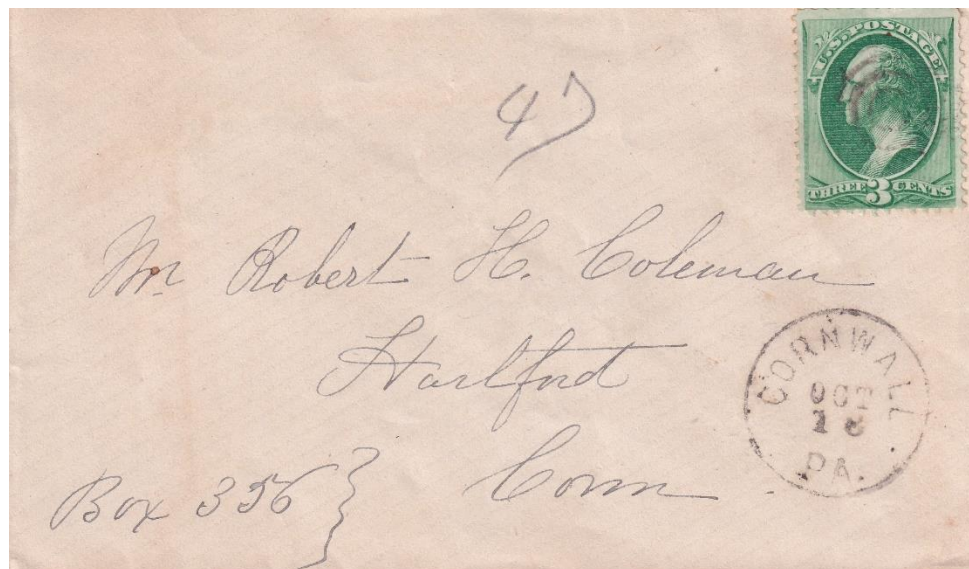 U.S. POSTAGE
THREE 3 CENTS
47
Mr. Robert H. Coleman
Hartford
Conn
Box 356
CORNWALL
OCT
PA.